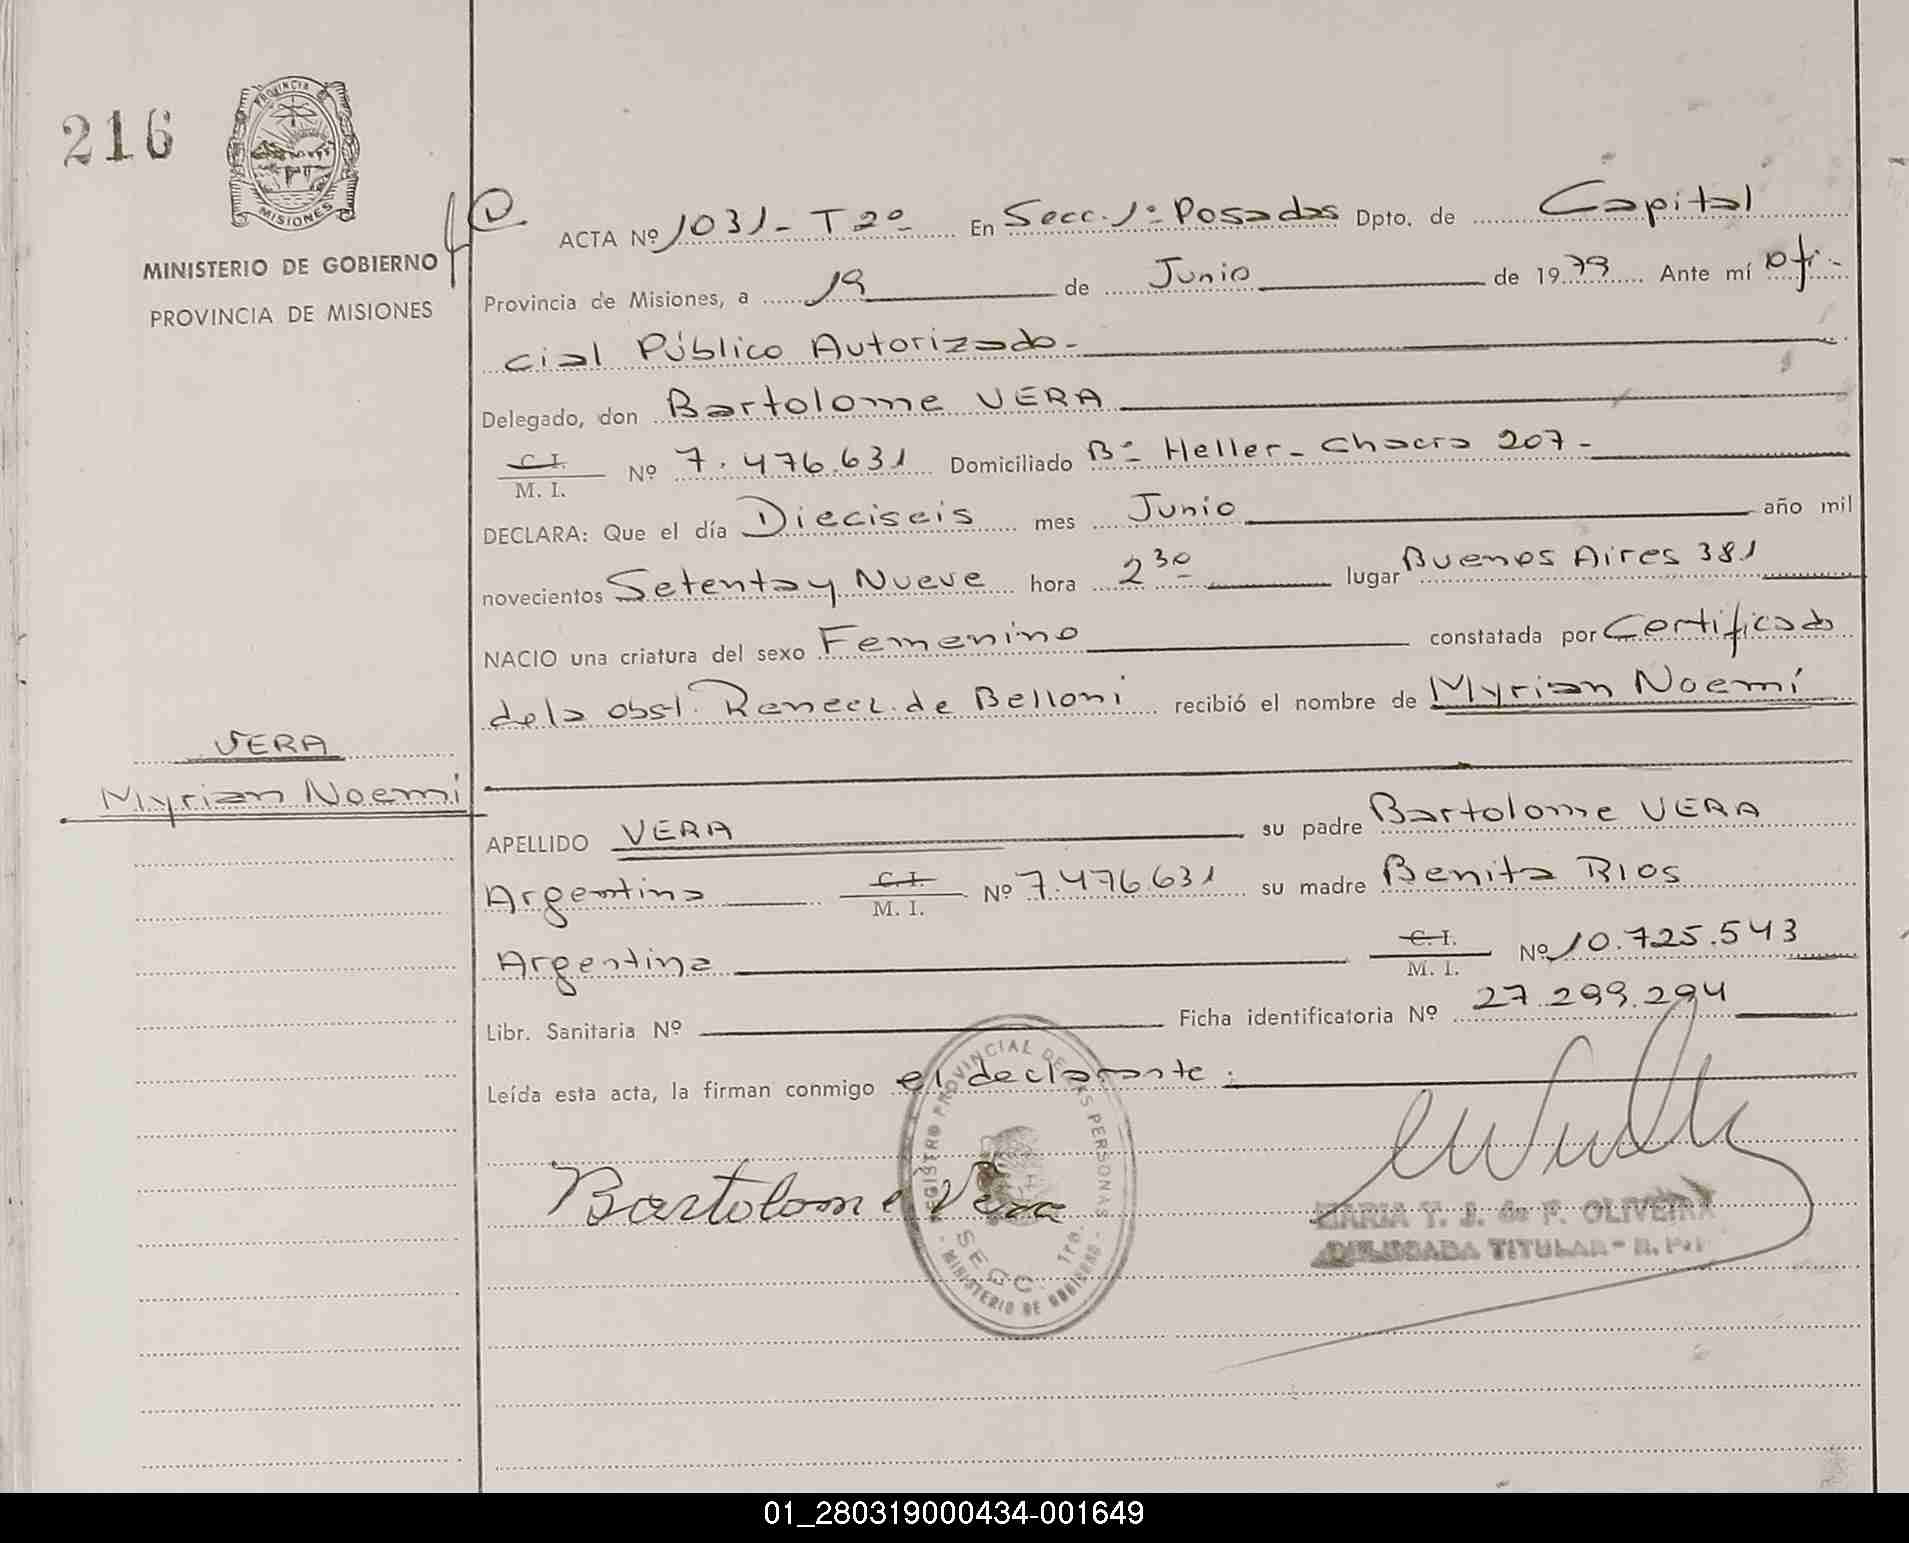 216
PROVINCIA DE
MISIONES
MINISTERIO DE GOBIERNO
PROVINCIA DE MISIONES
ACTA Nº 1031 - T 2º En Secc. 1º Posadas Dpto. de Capital
Provincia de Misiones, a 19 de Junio de 1979 Ante mí Ofi-
cial Público Autorizado -
Delegado, don Bartolome VERA
C. I.
M. I. Nº 7.476.631 Domiciliado Bº Heller - Chacra 207 -
DECLARA: Que el día Dieciseis mes Junio año mil
novecientos Setenta y Nueve hora 2 30 lugar Buenos Aires 381
NACIO una criatura del sexo Femenino constatada por Certificado
de la obst. de Belloni recibió el nombre de Myrian Noemí
VERA
Myrian Noemi
APELLIDO VERA su padre Bartolome VERA
Argentina C. I.
M. I. Nº 7.476.631 su madre Benita RIOS
Argentina C. I.
M. I. Nº 10.725.543
Libr. Sanitaria Nº Ficha identificatoria Nº 27.299.294
Leída esta acta, la firman conmigo el declarante :
Bartolome Vera
REGISTRO PROVINCIAL DE LAS PERSONAS
SECC. 1ra.
- MINISTERIO DE GOBIERNO -
MARIA Y. J. de F. OLIVEIRA
DELEGADA TITULAR - R. P. P.
01_280319000434-001649